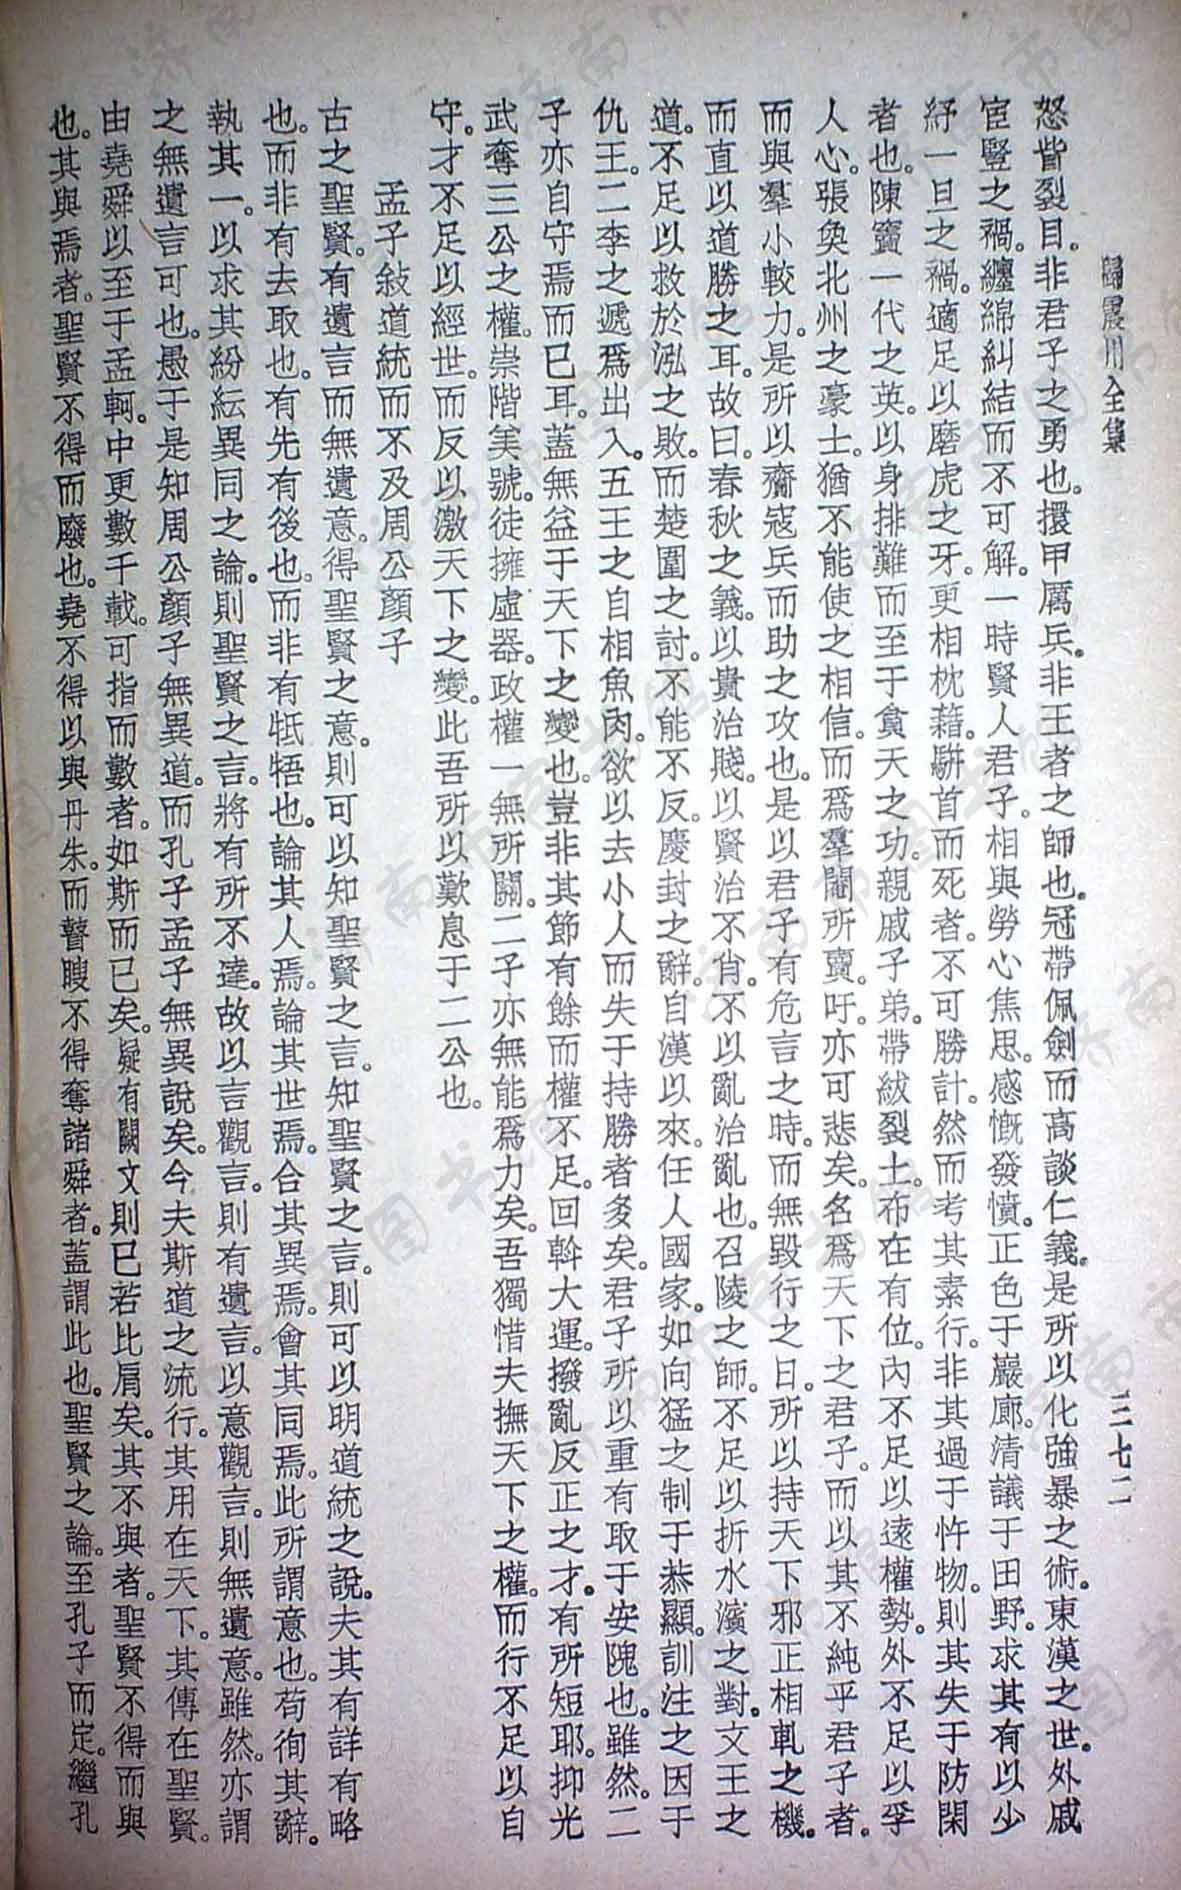 歸震川全集
三七二
怒眥裂目。非君子之勇也。擐甲厲兵。非王者之師也。冠帶佩劍而高談仁義。是所以化強暴之術。東漢之世。外戚
宦豎之禍。纏綿糾結而不可解。一時賢人君子。相與勞心焦思。感慨發憤。正色于巖廊。清議于田野。求其有以少
紓一旦之禍。適足以磨虎之牙。更相枕藉。駢首而死者。不可勝計。然而考其素行。非其過于忤物。則其失于防閑
者也。陳竇一代之英。以身排難。而至于貪天之功。親戚子弟。帶紱裂土。布在有位。內不足以遠權勢。外不足以孚
人心。張奐北州之豪士。猶不能使之相信。而爲羣閹所賣。吁。亦可悲矣。名爲天下之君子。而以其不純乎君子者。
而與羣小較力。是所以齎寇兵而助之攻也。是以君子有危言之時。而無毀行之日。所以持天下邪正相軋之機。
而直以道勝之耳。故曰。春秋之義。以貴治賤。以賢治不肖。不以亂治亂也。召陵之師。不足以折水濱之對。文王之
道。不足以救於泓之敗。而楚圍之討。不能不反。慶封之辭。自漢以來。任人國家。如向猛之制于恭顯。訓注之因于
仇王。二李之遞爲出入。五王之自相魚肉。欲以去小人而失于持勝者多矣。君子所以重有取于安隗也。雖然。二
子亦自守焉而已耳。蓋無益于天下之變也。豈非其節有餘而權不足。回斡大運。撥亂反正之才。有所短耶。抑光
武奪三公之權。崇階美號。徒擁虛器。政權一無所關。二子亦無能爲力矣。吾獨惜夫撫天下之權。而行不足以自
守。才不足以經世。而反以激天下之變。此吾所以歎息于二公也。
孟子敍道統而不及周公顏子
古之聖賢。有遺言而無遺意。得聖賢之意。則可以知聖賢之言。知聖賢之言。則可以明道統之說。夫其有詳有略
也。而非有去取也。有先有後也。而非有牴牾也。論其人焉。論其世焉。合其異焉。會其同焉。此所謂意也。苟徇其辭。
執其一。以求其紛紜異同之論。則聖賢之言。將有所不達。故以言觀言。則有遺言。以意觀言。則無遺意。雖然。亦謂
之無遺言可也。愚于是知周公顏子無異道。而孔子孟子無異說矣。今夫斯道之流行。其用在天下。其傳在聖賢。
由堯舜以至于孟軻。中更數千載。可指而數者。如斯而已矣。疑有闕文則已若比肩矣。其不與者。聖賢不得而與
也。其與焉者。聖賢不得而廢也。堯不得以與丹朱。而瞽瞍不得奪諸舜者。蓋謂此也。聖賢之論。至孔子而定。繼孔